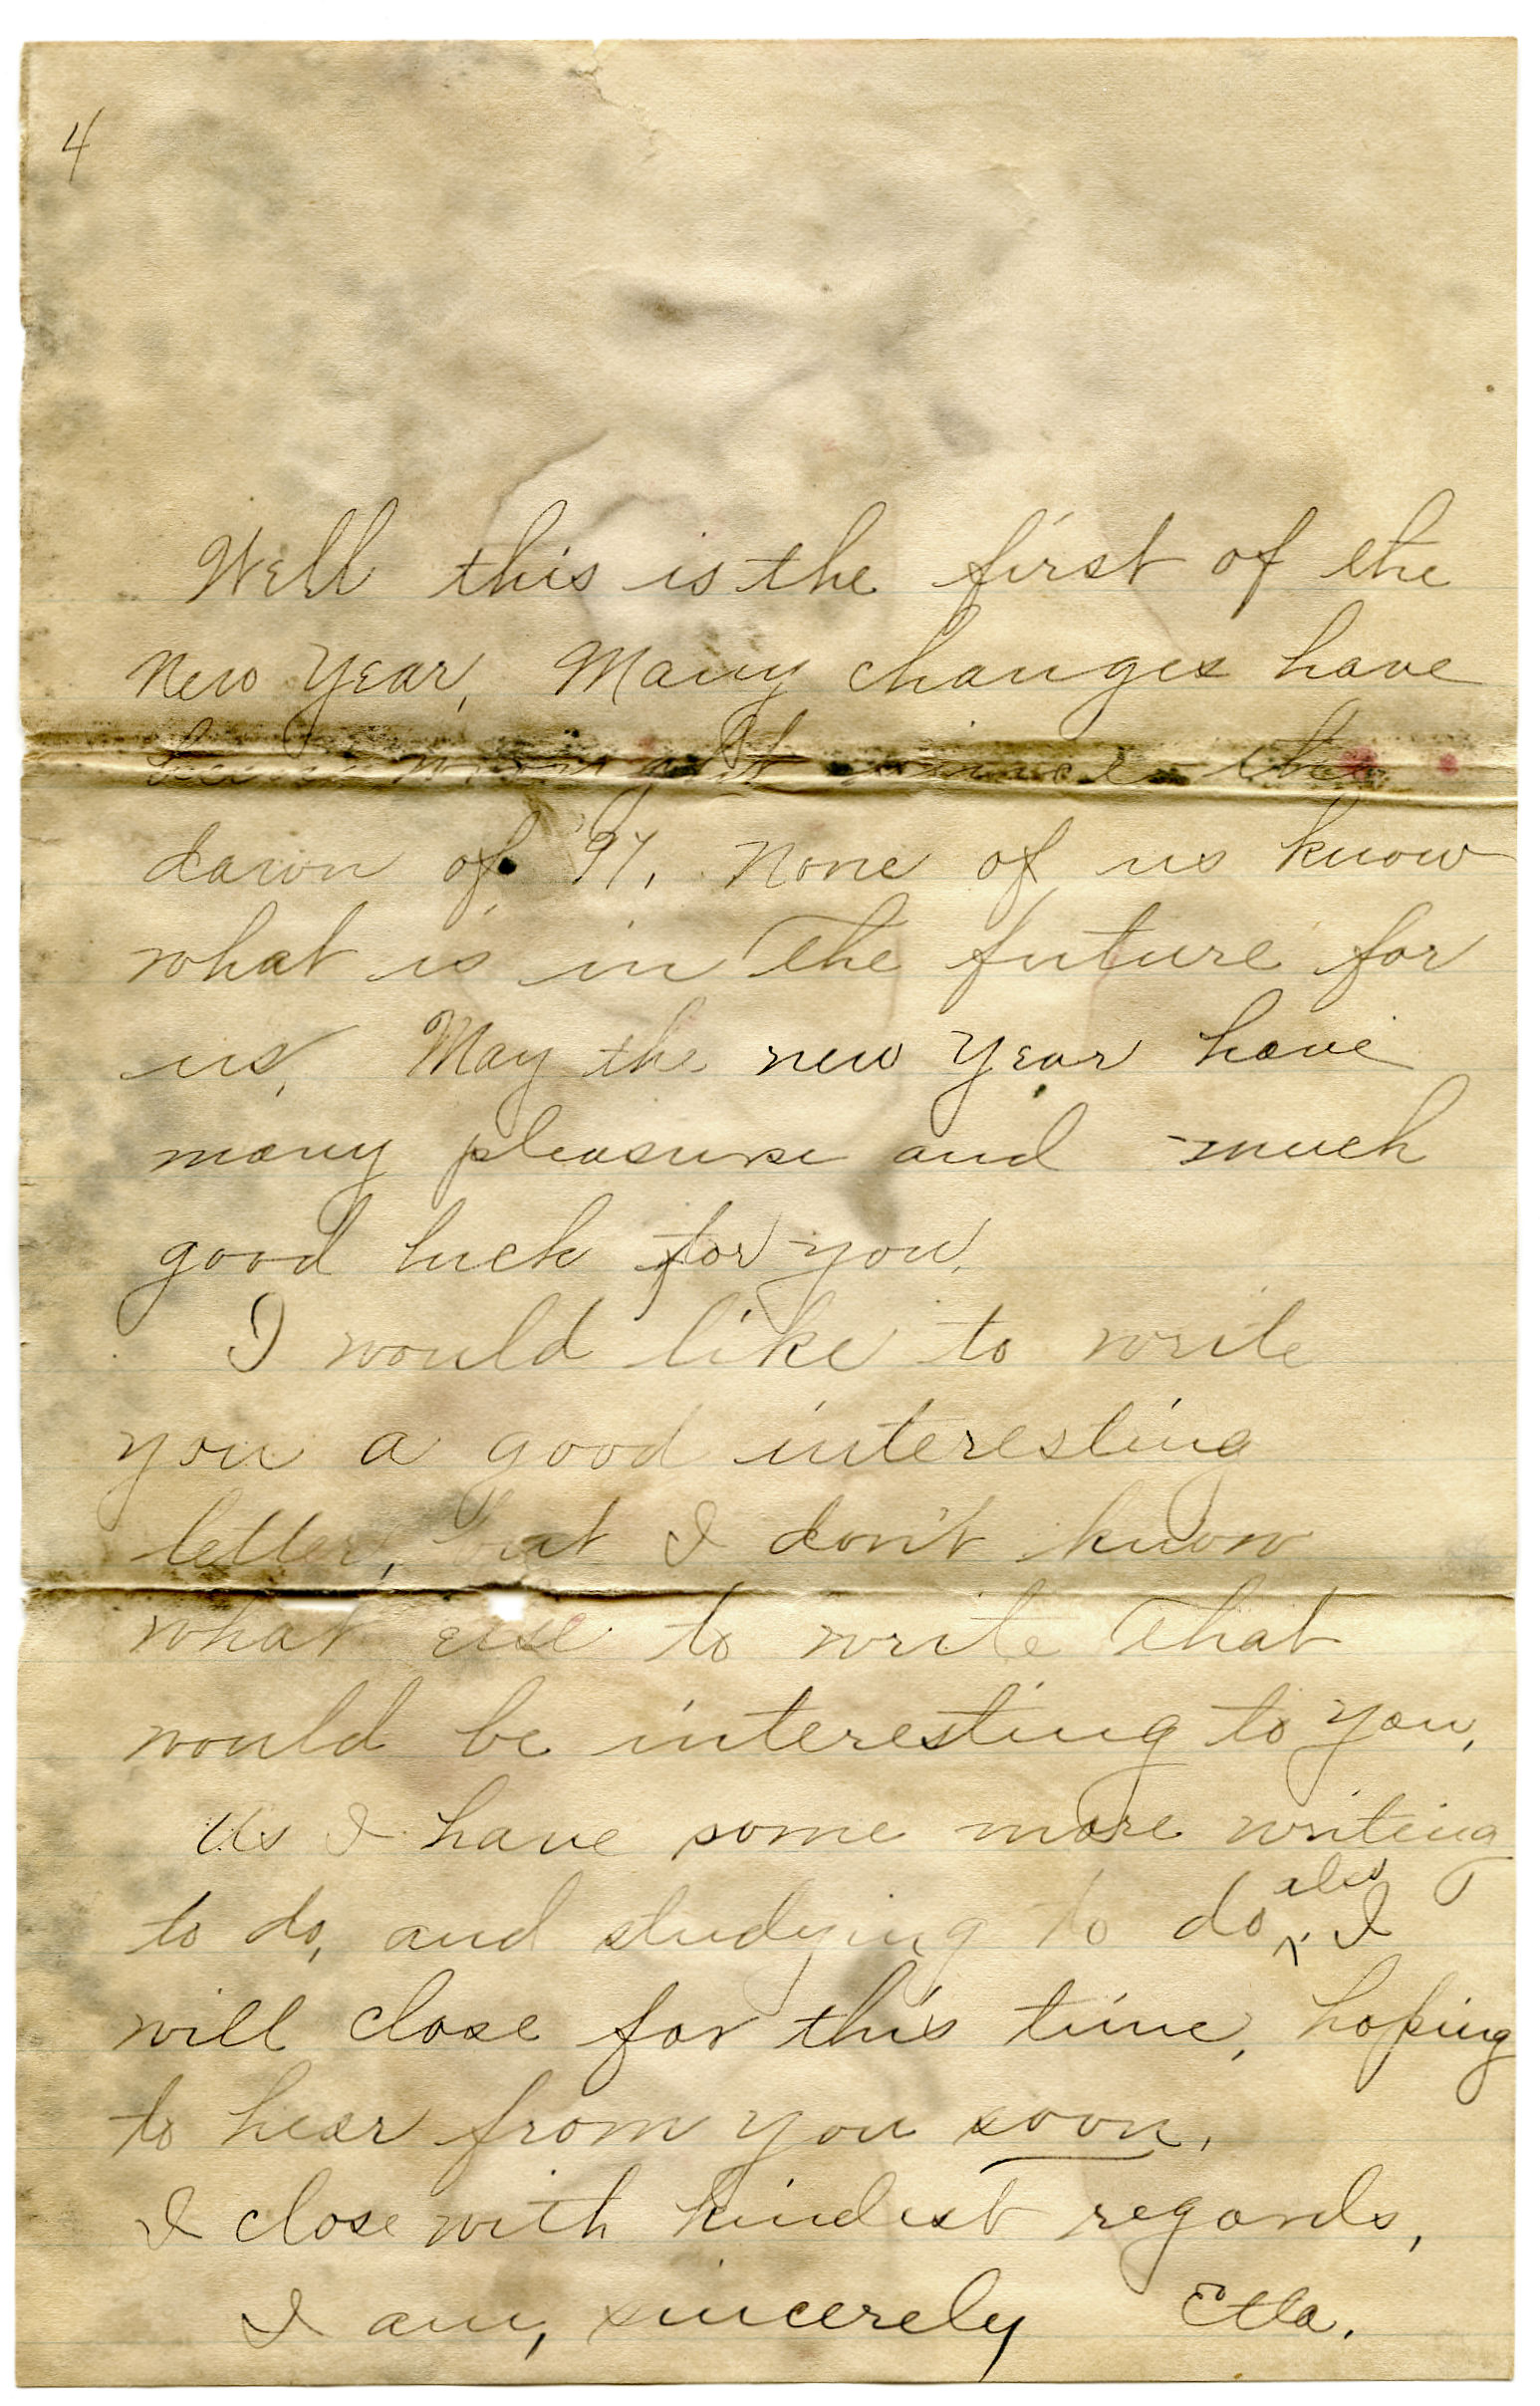 4
Well this is the first of the
New Year, Many changes have
since the
dawn of '97. None of us know
what is in the future for
us. May the new Year have
many pleasure and much
good luck for you.
I would like to write
you a good interesting
letter, but I don't know
what else to write that
would be interesting to you,
As I have some more writing
to do, and studying to do also, I
will close for this time, hoping
to hear from you soon.
I close with kindest regards,
I am, sincerely Etta.